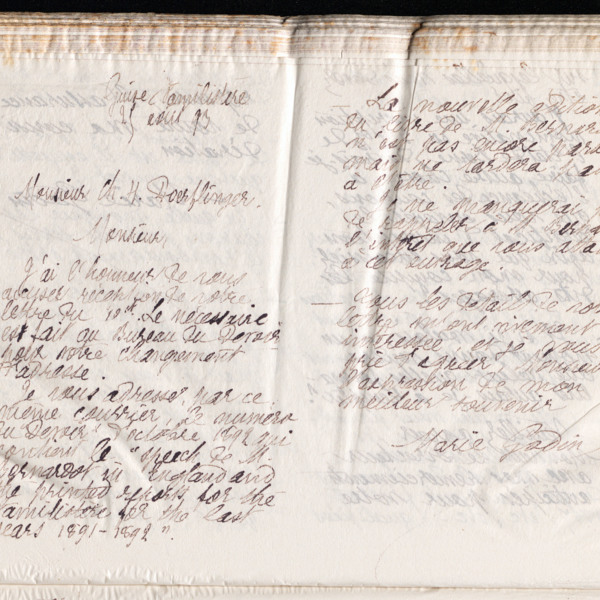 Guise Familistère
25 août 93
Monsieur Ch. H. Doerflinger.
Monsieur,
J'ai l'honneur de vous
accuser réception de votre
lettre du 10 ct. Le nécessaire
est fait au Bureau du Devoir
pour votre changement
d'adresse.
Je vous adresse, par ce
même courrier, le numéro
du Devoir d'octobre 1892 qui
contient le "speech de M.
Bernardot in England and
the printed reports for the
familistère for the last
years 1891-1892".
— La nouvelle édition
du livre de M. Bernardot
n'est pas encore parue
mais ne tardera pas
à l'être.
Je ne manquerai pas
de rappeler à M. Bernardot
l'intérêt que vous attachez
à cet ouvrage.
— Tous les détails de votre
lettre m'ont vivement
intéressée et je vous
prie d'agréer, Monsieur,
l'expression de mon
meilleur souvenir
Marie Godin